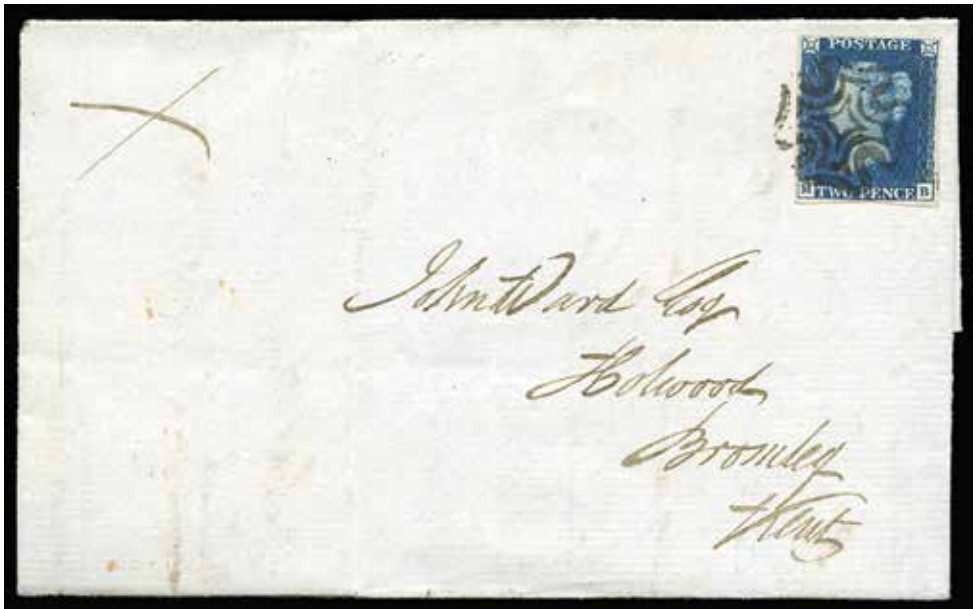 POSTAGE
TWO PENCE B
John Ward Esq
Holwood
Bromley
Kent